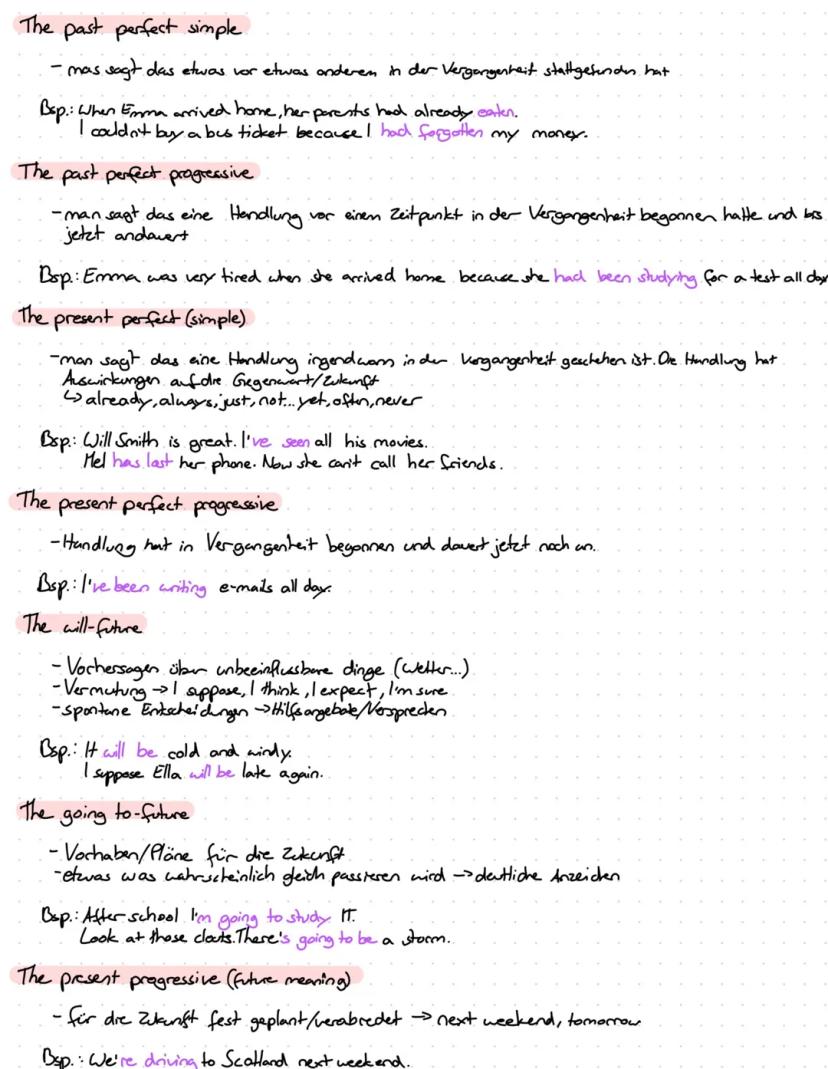 The past perfect simple
- mas sagt das etwas vor etwas anderem in der Vergangenheit stattgefunden hat
Bsp.: When Emma arrived home, her parents had already eaten.
I couldn't buy a bus ticket because I had forgotten my money.
The past perfect progressive
- man sagt das eine Handlung vor einem Zeitpunkt in der Vergangenheit begonnen hatte und bis
jetzt andauert
Bsp.: Emma was very tired when she arrived home because she had been studying for a test all day
The present perfect (simple)
- man sagt das eine Handlung irgendwann in der Vergangenheit geschehen ist. Die Handlung hat
Auswirkungen auf die Gegenwart/Zukunft
↳ already, always, just, not... yet, often, never
Bsp.: Will Smith is great. I've seen all his movies.
Mel has lost her phone. Now she can't call her friends.
The present perfect progressive
- Handlung hat in Vergangenheit begonnen und dauert jetzt noch an.
Bsp.: I've been writing e-mails all day.
The will-future
- Vorhersagen über unbeeinflussbare dinge (Wetter...)
- Vermutung → I suppose, I think, I expect, I'm sure
- spontane Entscheidungen → Hilfsangebote/Versprechen
Bsp.: It will be cold and windy.
I suppose Ella will be late again.
The going to-future
- Vorhaben/Pläne für die Zukunft
- etwas was wahrscheinlich gleich passieren wird → deutliche Anzeichen
Bsp.: After school I'm going to study IT.
Look at those clouts. There's going to be a storm.
The present progressive (future meaning)
- für die Zukunft fest geplant/verabredet → next weekend, tomorrow
Bsp.: We're driving to Scotland next weekend.